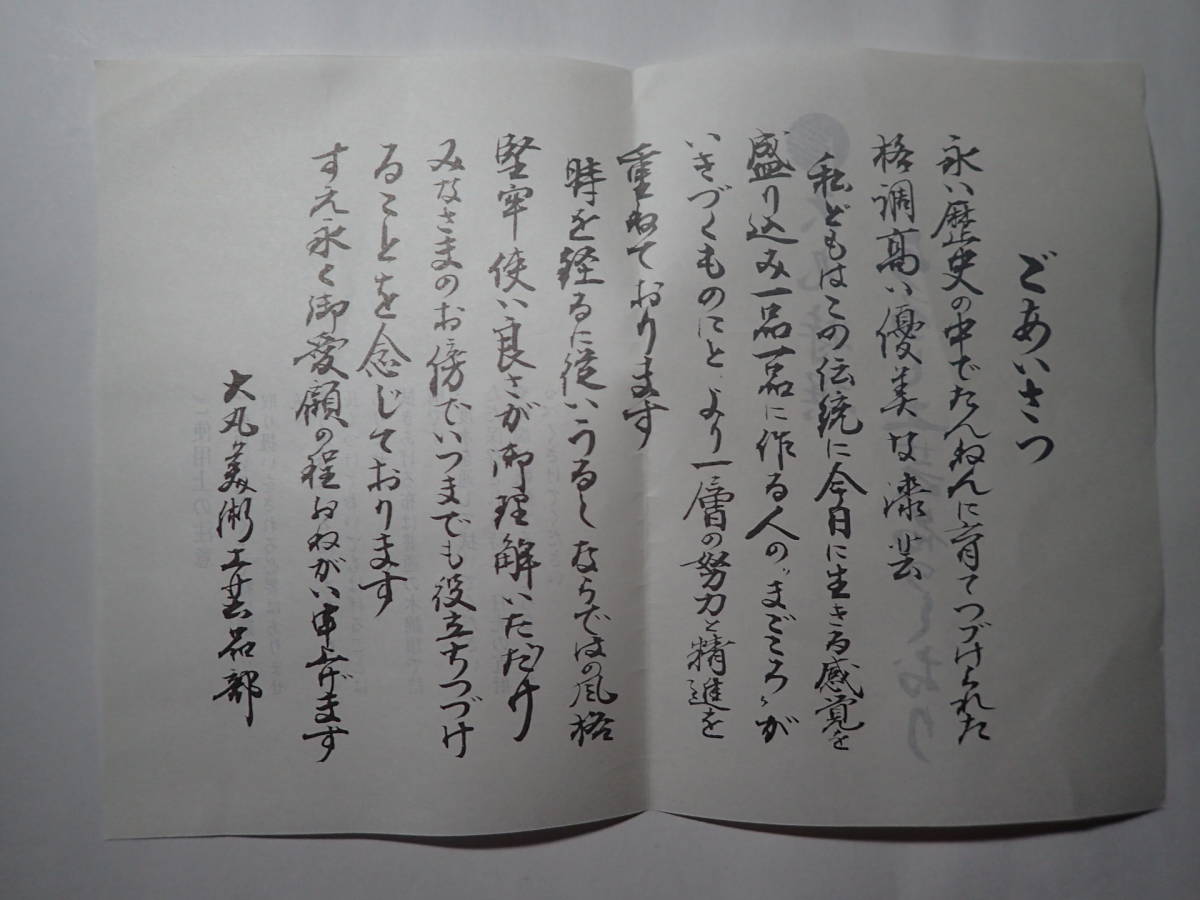 ごあいさつ
永い歴史の中でたんねんに育てつづけられた
格調高い優美な漆芸
私どもはこの伝統に今日に生きる感覚を
盛り込み一品一品に作る人の〝まごころ〟が
いきづくものにと、より一層の努力と精進を
重ねております
時を経るに従いうるしならではの風格
堅牢 使い良さが御理解いただけ
みなさまのお傍でいつまでも役立ちつづけ
ることを念じております
すえ永く御愛顧の程おねがい申上げます
大丸美術工芸品部